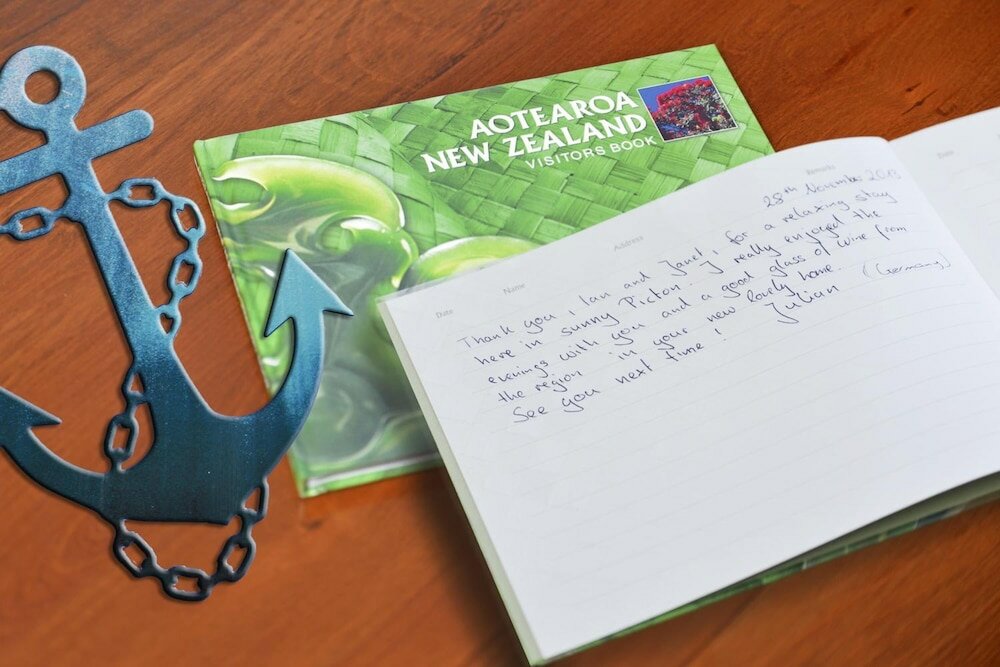 AOTEAROA
NEW ZEALAND
VISITORS BOOK
Date Name Address Remarks
Date
28th November 2013
Thank you, Ian and Janet, for a relaxing stay
here in sunny Picton. I really enjoyed the
evenings with you and a good glass of wine from
the region in your new lovely home.
See you next time! Julian (Germany)